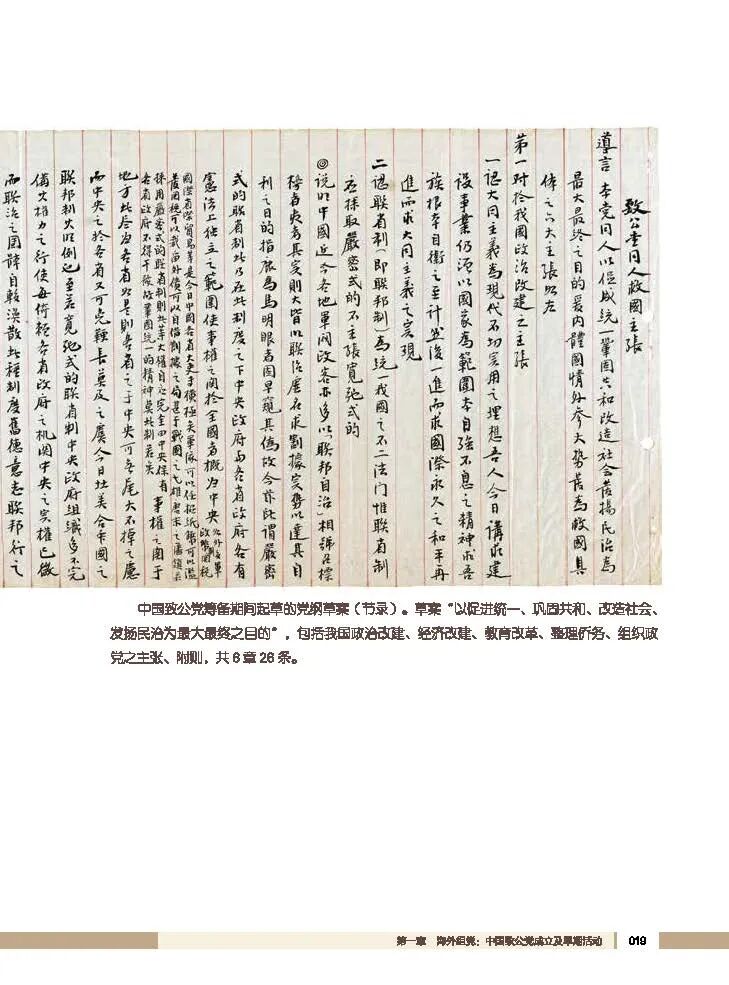 致公堂同人救國主張
導言 本黨同人以促成統一鞏固共和改造社會發揚民治為
最大最終之目的爰內體國情外參大勢發為救國具
体之六大主張如左
第一對於我國政治改建之主張
一認大同主義為現代不切實用之理想吾人今日講求建
設事業仍須以國家為範圍本自強不息之精神求吾
族根本自衛之至計然後一進而求國際永久之和平再
進而求大同主義之實現
二認聯省制(即聯邦制)為統一我國之不二法門惟聯省制
應採取嚴密式的不主張寬弛式的
◎說明中國近今各地軍閥政客亦多以「聯邦自治」相號召標
榜者夷考其實則大皆以聯治虛名求割據實勢以達其自
利之目的指鹿為馬明眼者固早窺其偽故今茲所謂嚴密
式的聯省制此乃在此制度之下中央政府与各省政府各有
憲法上独立之範圍使事權之關於全國者概为中央
採用嚴密式的聯省制則此等大權自必完全由中央保有 事權之關于
各省政府不得干預故鞏固統一的精神莫此制若矣
地方
而中央之於各省又可免鞭長莫及之虞今日北美合眾國之
聯邦制大明例也至若寬弛式的聯省制中央政府組織多不完
備其權力之行使每倚賴各省政府之机關中央之實權已微
而聯治之團體自赖渙散此種制度舊德意志聯邦行之
中国致公党筹备期间起草的党纲草案（节录）。草案“以促进统一、巩固共和、改造社会、
发扬民治为最大最终之目的”，包括我国政治改建、经济改建、教育改革、整理侨务、组织政
党之主张、附则，共6章26条。
第一章 海外组党：中国致公党成立及早期活动 019